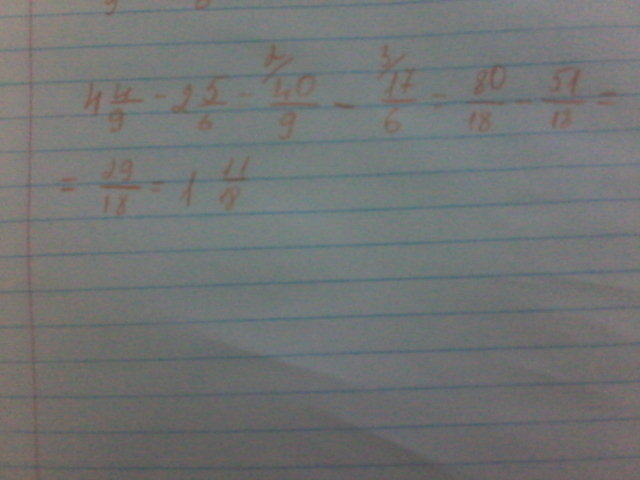 4 4/9 - 2 5/6 = 2/ 40/9 - 3/ 17/6 = 80/18 - 51/18 =
= 29/18 = 1 11/18